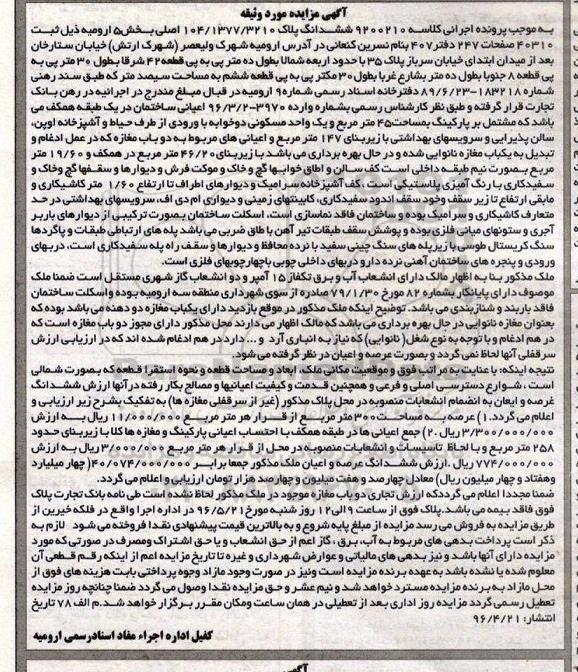 آگهی مزایده مورد وثیقه
به موجب پرونده اجرائی کلاسه ۹۲۰۰۲۱۰ ششدانگ پلاک ۱۰۴/۱۳۷۷/۳۲۱۰ اصلی بخش۵ ارومیه ذیل ثبت
۴۰۳۱۰ صفحات ۲۴۷ دفتر ۴۰۷ بنام نسرین کنعانی در آدرس ارومیه شهرک ولیعصر (شهرک ارتش) خیابان ستارخان
بعد از میدان ابتدای خیابان سرباز پلاک ۳۵ با حدود اربعه شمالا بطول ده متر پی به پی قطعه ۴۲ شرقا بطول ۳۰ متر پی به
پی قطعه ۸ جنوبا بطول ده متر بشارع غربا بطول ۳۰ مکتر پی به پی قطعه ششم به مساحت سیصد متر که طبق سند رهنی
شماره ۱۸۳۲۱۸-۸۹/۶/۲۳ دفترخانه اسناد رسمی شماره۹ ارومیه در قبال مبلغ مندرج در اجرائیه در رهن بانک
تجارت قرار گرفته و طبق نظر کارشناس رسمی بشماره وارده ۳۹۷۰-۹۶/۳/۲ اعیانی ساختمان در یک طبقه همکف می
باشد که مشتمل بر پارکینگ بمساحت۴۵ متر مربع و یک واحد مسکونی دوخوابه با ورودی از طرف حیاط و آشپزخانه اوپن،
سالن پذیرایی و سرویسهای بهداشتی با زیربنای ۱۴۷ متر مربع و اعیانی های مربوط به دو باب مغازه که در عمل ادغام و
تبدیل به یکباب مغازه نانوایی شده و در حال بهره برداری می باشد با زیربنای ۴۶/۲۰ متر مربع در همکف و ۱۹/۶۰ متر
مربع بصورت نیم طبقه داخلی است کف سالن و اطاق خوابها گچ و خاک و موکت فرش و دیوارها و سقفها گچ وخاک و
سفیدکاری با رنگ آمیزی پلاستیکی است، کف آشپزخانه سرامیک و دیوارهای اطراف تا ارتفاع ۱/۶۰ متر کاشیکاری و
مابقی ارتفاع تا زیر سقف وخود سقف اندود سفیدکاری، کابینتهای زمینی و دیواری ام دی اف، سرویسهای بهداشتی در حد
متعارف کاشیکاری و سرامیک بوده و ساختمان فاقد نماسازی است، اسکلت ساختمان بصورت ترکیبی از دیوارهای باربر
آجری و ستونهای میانی فلزی بوده و پوشش سقف طبقات تیر آهن با طاق ضربی می باشد پله های ارتباطی طبقات و پاگردها
سنگ کریستال طوسی با زیرپله های سنگ چینی سفید با نرده محافظ و دیوارها و سقف راه پله سفیدکاری است، دربهای
ورودی و پنجره های ساختمان آهنی نرده دار و دربهای داخلی چوبی باچهارچوبهای فلزی است.
ملک مذکور بنا به اظهار مالک دارای انشعاب آب و برق تکفاز ۱۵ آمپر و دو انشعاب گاز شهری مستقل است ضمنا ملک
موصوف دارای پایانکار بشماره ۸۲ مورخ ۷۹/۱/۳۰ صادره از سوی شهرداری منطقه سه ارومیه بوده و اسکلت ساختمان
فاقد باربند و شناژبندی می باشد. توضیح اینکه ملک مذکور در موقع بازدید دارای یکباب مغازه دو دهنه می باشد بوده که
بعنوان مغازه نانوایی در حال بهره برداری می باشد که مالک اظهار می دارند محل مذکور دارای مجوز دو باب مغازه است که
در هم ادغام و با توجه به نوع شغل( نانوایی) که نیاز به انباری آرد و ... دارد در هم ادغام شده اند که در ارزیابی ارزش
سرقفلی آنها لحاظ نمی گردد و بصورت عرصه و اعیان در نظر گرفته می شود.
نتیجه اینکه: با عنایت به مراتب فوق و موقعیت مکانی ملک، ابعاد و مساحت قطعه و نحوه استقرار قطعه که بصورت شمالی
است ، شوارع دسترسی اصلی و فرعی و همچنین قدمت و کیفیت اعیانیها و مصالح بکار رفته در آنها ارزش ششدانگ
عرصه و ایعان به انضمام انشعابات منصوبه در محل پلاک مذکور (غیر از سرقفلی مغازه ها) به تفکیک بشرح زیر ارزیابی و
اعلام می گردد. ۱) عرصه به مساحت ۳۰۰ متر مربع از قرار هر متر مربع ۱۱/۰۰۰/۰۰۰ ریال به ارزش
۳/۳۰۰/۰۰۰/۰۰۰ ریال .۲) جمع اعیانی ها در طبقه همکف با احتساب اعیانی پارکینگ و مغازه ها کلا با زیربنای حدود
۲۵۸ متر مربع و با لحاظ تاسیسات و انشعابات منصوبه در محل از قرار هر متر مربع ۳/۰۰۰/۰۰۰ ریال به ارزش
۷۷۴/۰۰۰/۰۰۰ ریال .ارزش ششدانگ عرصه و اعیان ملک مذکور جمعا برابر ۴۰/۰۷۴/۰۰۰/۰۰۰( چهار میلیارد
وهفتاد و چهار میلیون ریال) معادل چهارصد و هفت میلیون و چهارصد هزار تومان ارزیابی و اعلام می گردد.
ضمنا مجددا اعلام می گرددکه ارزش تجاری دو باب مغازه موجود در ملک مذکور لحاظ نشده است طی نامه بانک تجارت پلاک
فوق فاقد بیمه می باشد. پلاک فوق از ساعت ۹ الی ۱۲ روز شنبه مورخ ۹۶/۵/۲۱ در اداره اجرا واقع در فلکه خیرین از
طریق مزایده به فروش می رسد مزایده از مبلغ پایه شروع و به بالاترین قیمت پیشنهادی نقدا فروخته می شود لازم به
ذکر است پرداخت بدهی های مربوط به آب، برق ، گاز اعم از حق انشعاب و یا حق اشتراک ومصرف در صورتی که مورد
مزایده دارای آنها باشد و نیز بدهی های مالیاتی و عوارض شهرداری و غیره تا تاریخ مزایده اعم از اینکه رقم قطعی آن
معلوم شده یا نشده باشد به عهده برنده مزایده است ونیز در صورت وجود مازاد وجوه پرداختی بابت هزینه های فوق از
محل مازاد به برنده مزایده مسترد خواهد شد و نیم عشر و حق مزایده نقدا وصول می گردد ضمنا چنانچه روز مزایده
تعطیل رسمی گردد مزایده روز اداری بعد از تعطیلی در همان ساعت ومکان مقرر برگزار خواهد شد.م الف ۷۸ تاریخ
انتشار: ۹۶/۴/۲۱
کفیل اداره اجراء مفاد اسنادرسمی ارومیه